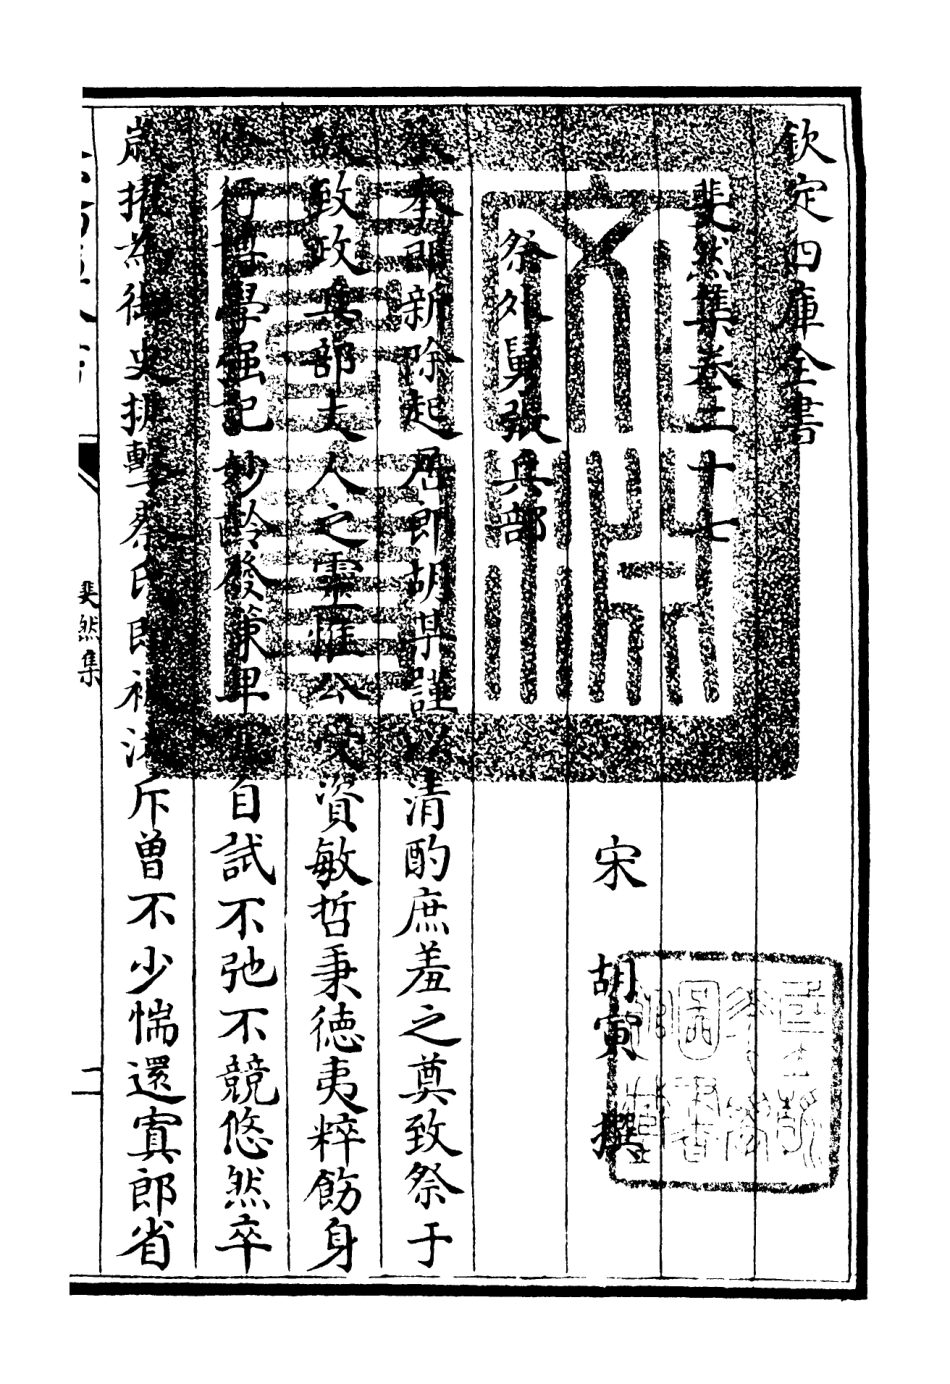 欽定四庫全書
斐然集卷二十七
宋 胡寅 撰
祭外舅張兵部
奉郎新除起居郎胡某謹以清酌庶羞之奠致祭于
致政兵部丈人之靈惟公受資敏哲秉德夷粹飭身
行博學强記妙齡發策卑自試不弛不競悠然卒
歳擢為御史抨擊蔡氏斥曾不少惴還寘郎省
斐然集
二